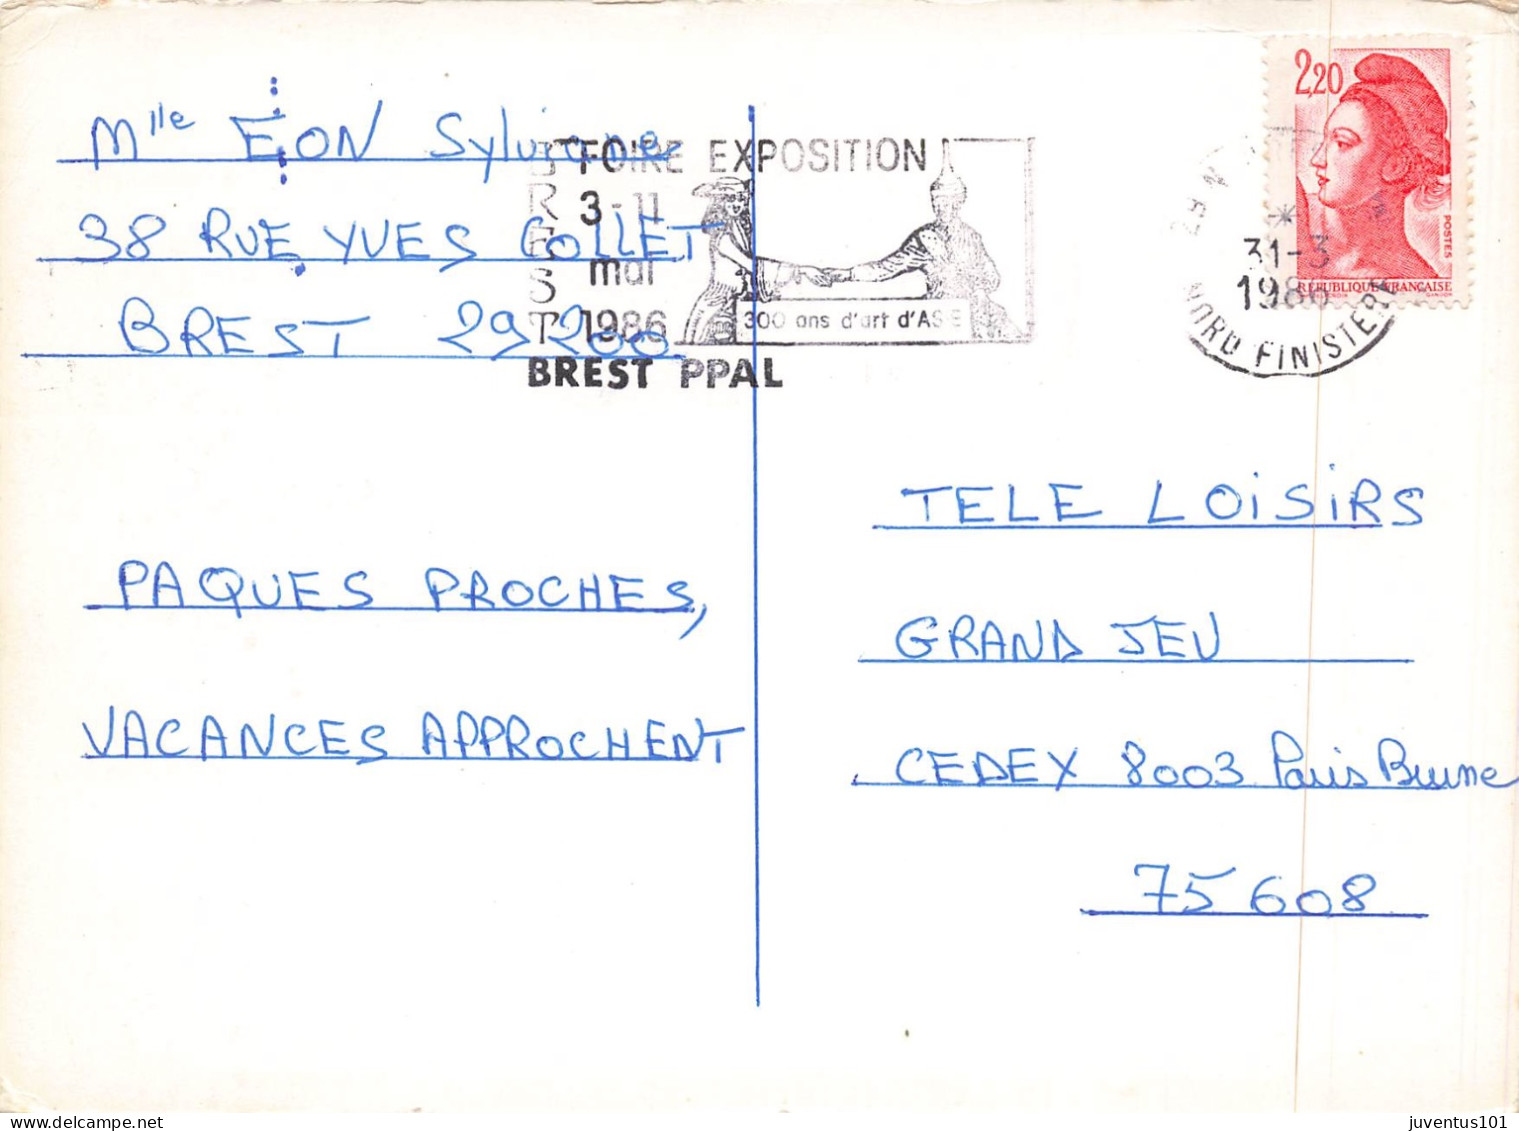 Mlle EON Sylviane
38 RUE YVES COLLET
BREST 29200
PAQUES PROCHES,
VACANCES APPROCHENT
BREST
FOIRE EXPOSITION
3-11
mai
1986
300 ans d'art d'ASIE
BREST PPAL
2,20
POSTES
RÉPUBLIQUE FRANÇAISE
31-3
1986
NORD FINISTERE
TELE LOISIRS
GRAND JEU
CEDEX 8003 Paris Brune
75608
juventus101